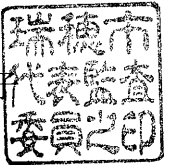 瑞穂市
代表監査
委員之印